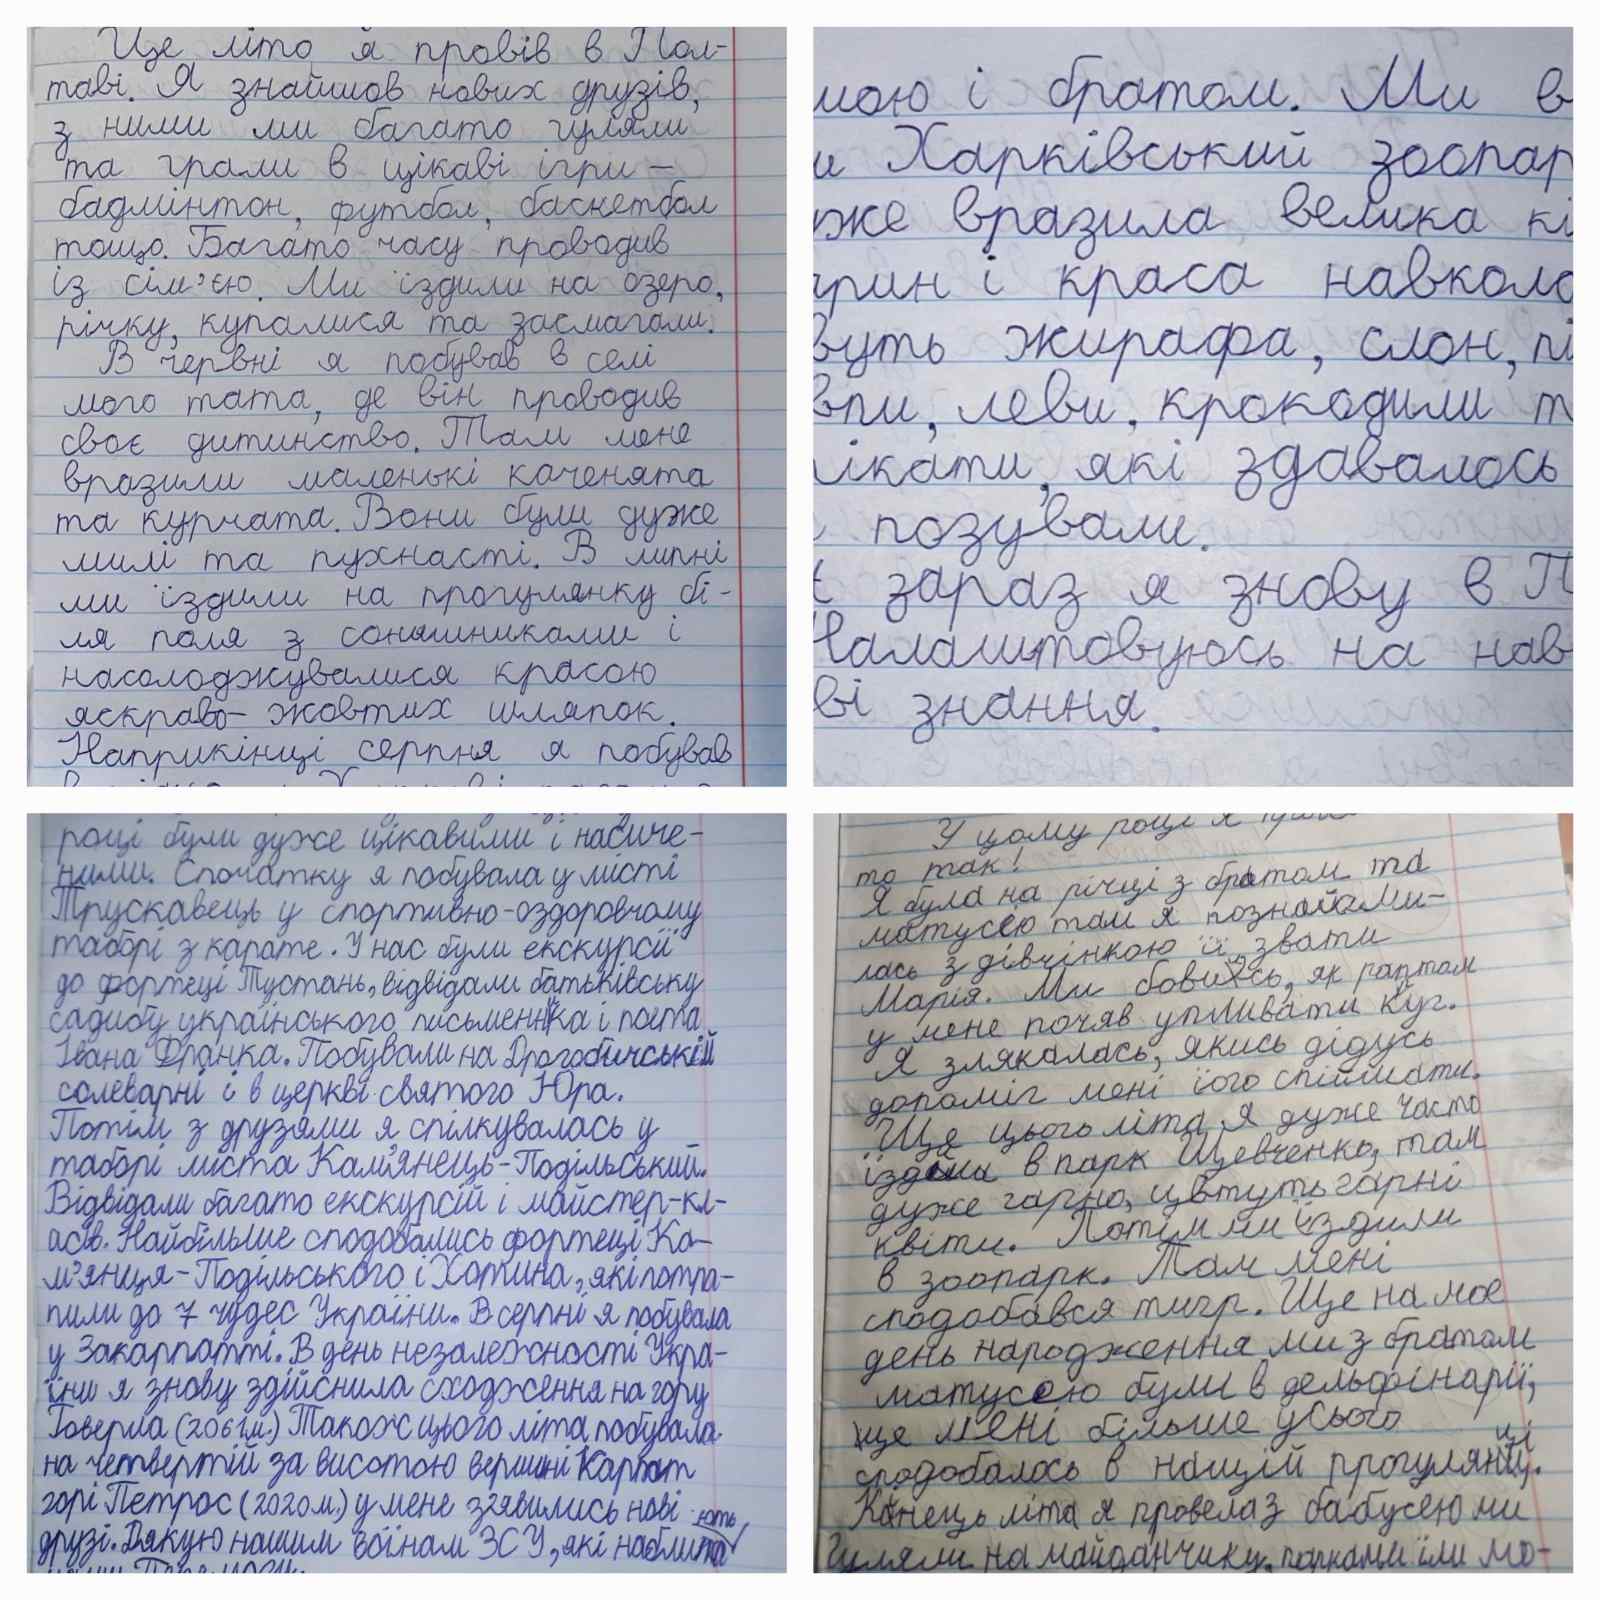 Це літо я провів в Пол-
таві. Я знайшов нових друзів,
з ними ми багато гуляли
та грали в цікаві ігри –
бадмінтон, футбол, баскетбол
тощо. Багато часу проводив
із сім'єю. Ми їздили на озеро,
річку, купалися та засмагали.
В червні я побував в селі
мого тата, де він проводив
своє дитинство. Там мене
вразили маленькі каченята
та курчата. Вони були дуже
милі та пухнасті. В липні
ми їздили на прогулянку бі-
ля поля з соняшниками і
насолоджувалися красою
яскраво-жовтих шляпок.
Наприкінці серпня я побував
мою і братом. Ми в
и Харківський зоопар
же вразила велика кі
арин і краса навколо
вуть жирафа, слон, пі
впи, леви, крокодили т
лікати, які здавалось
позували.
зараз я знову в П
Налаштовуюсь на нав
ві знання.
році були дуже цікавими і насиче-
ними. Спочатку я побувала у місті
Трускавець у спортивно-оздоровчому
таборі з карате. У нас були екскурсії
до фортеці Тустань, відвідали батьківську
садибу українського письменника і поета
Івана Франка. Побували на Дрогобичській
солеварні і в церкві святого Юра.
Потім з друзями я спілкувалась у
таборі міста Кам'янець-Подільський.
Відвідали багато екскурсій і майстер-кл-
асів. Найбільше сподобались фортеці Ка-
м'янця-Подільського і Хотина, які потра-
пили до 7 чудес України. В серпні я побувала
у Закарпатті. В день незалежності Укра-
їни я знову здійснила сходження на гору
Говерла (2061м.) Також цього літа побувала
на четвертій за висотою вершині Карпат
горі Петрос (2020м.) у мене з'явились нові
друзі. Дякую нашим воїнам ЗСУ, які наближають
У цому році я
то так!
Я була на річці з братом та
матусею там я познайоми-
лась з дівчінкою її звати
Марія. Ми бовились, як раптом
у мене почяв упливати куг.
Я злякалась, якись дідусь
допоміг мені його спіймати.
Ще цього літа я дуже часто
їздила в парк Шевченко, там
дуже гарно, цвтуть гарні
квіти. Потім ми їздили
в зоопарк. Там мені
сподобався тигр. Ще на моє
день народження ми з братом
матусею були в дельфінарії,
ще мені більше усього
сподобалось в нащій прогулянці.
Конець літа я провела з бабусею ми
гуляли на майданчику, парками їли мо-